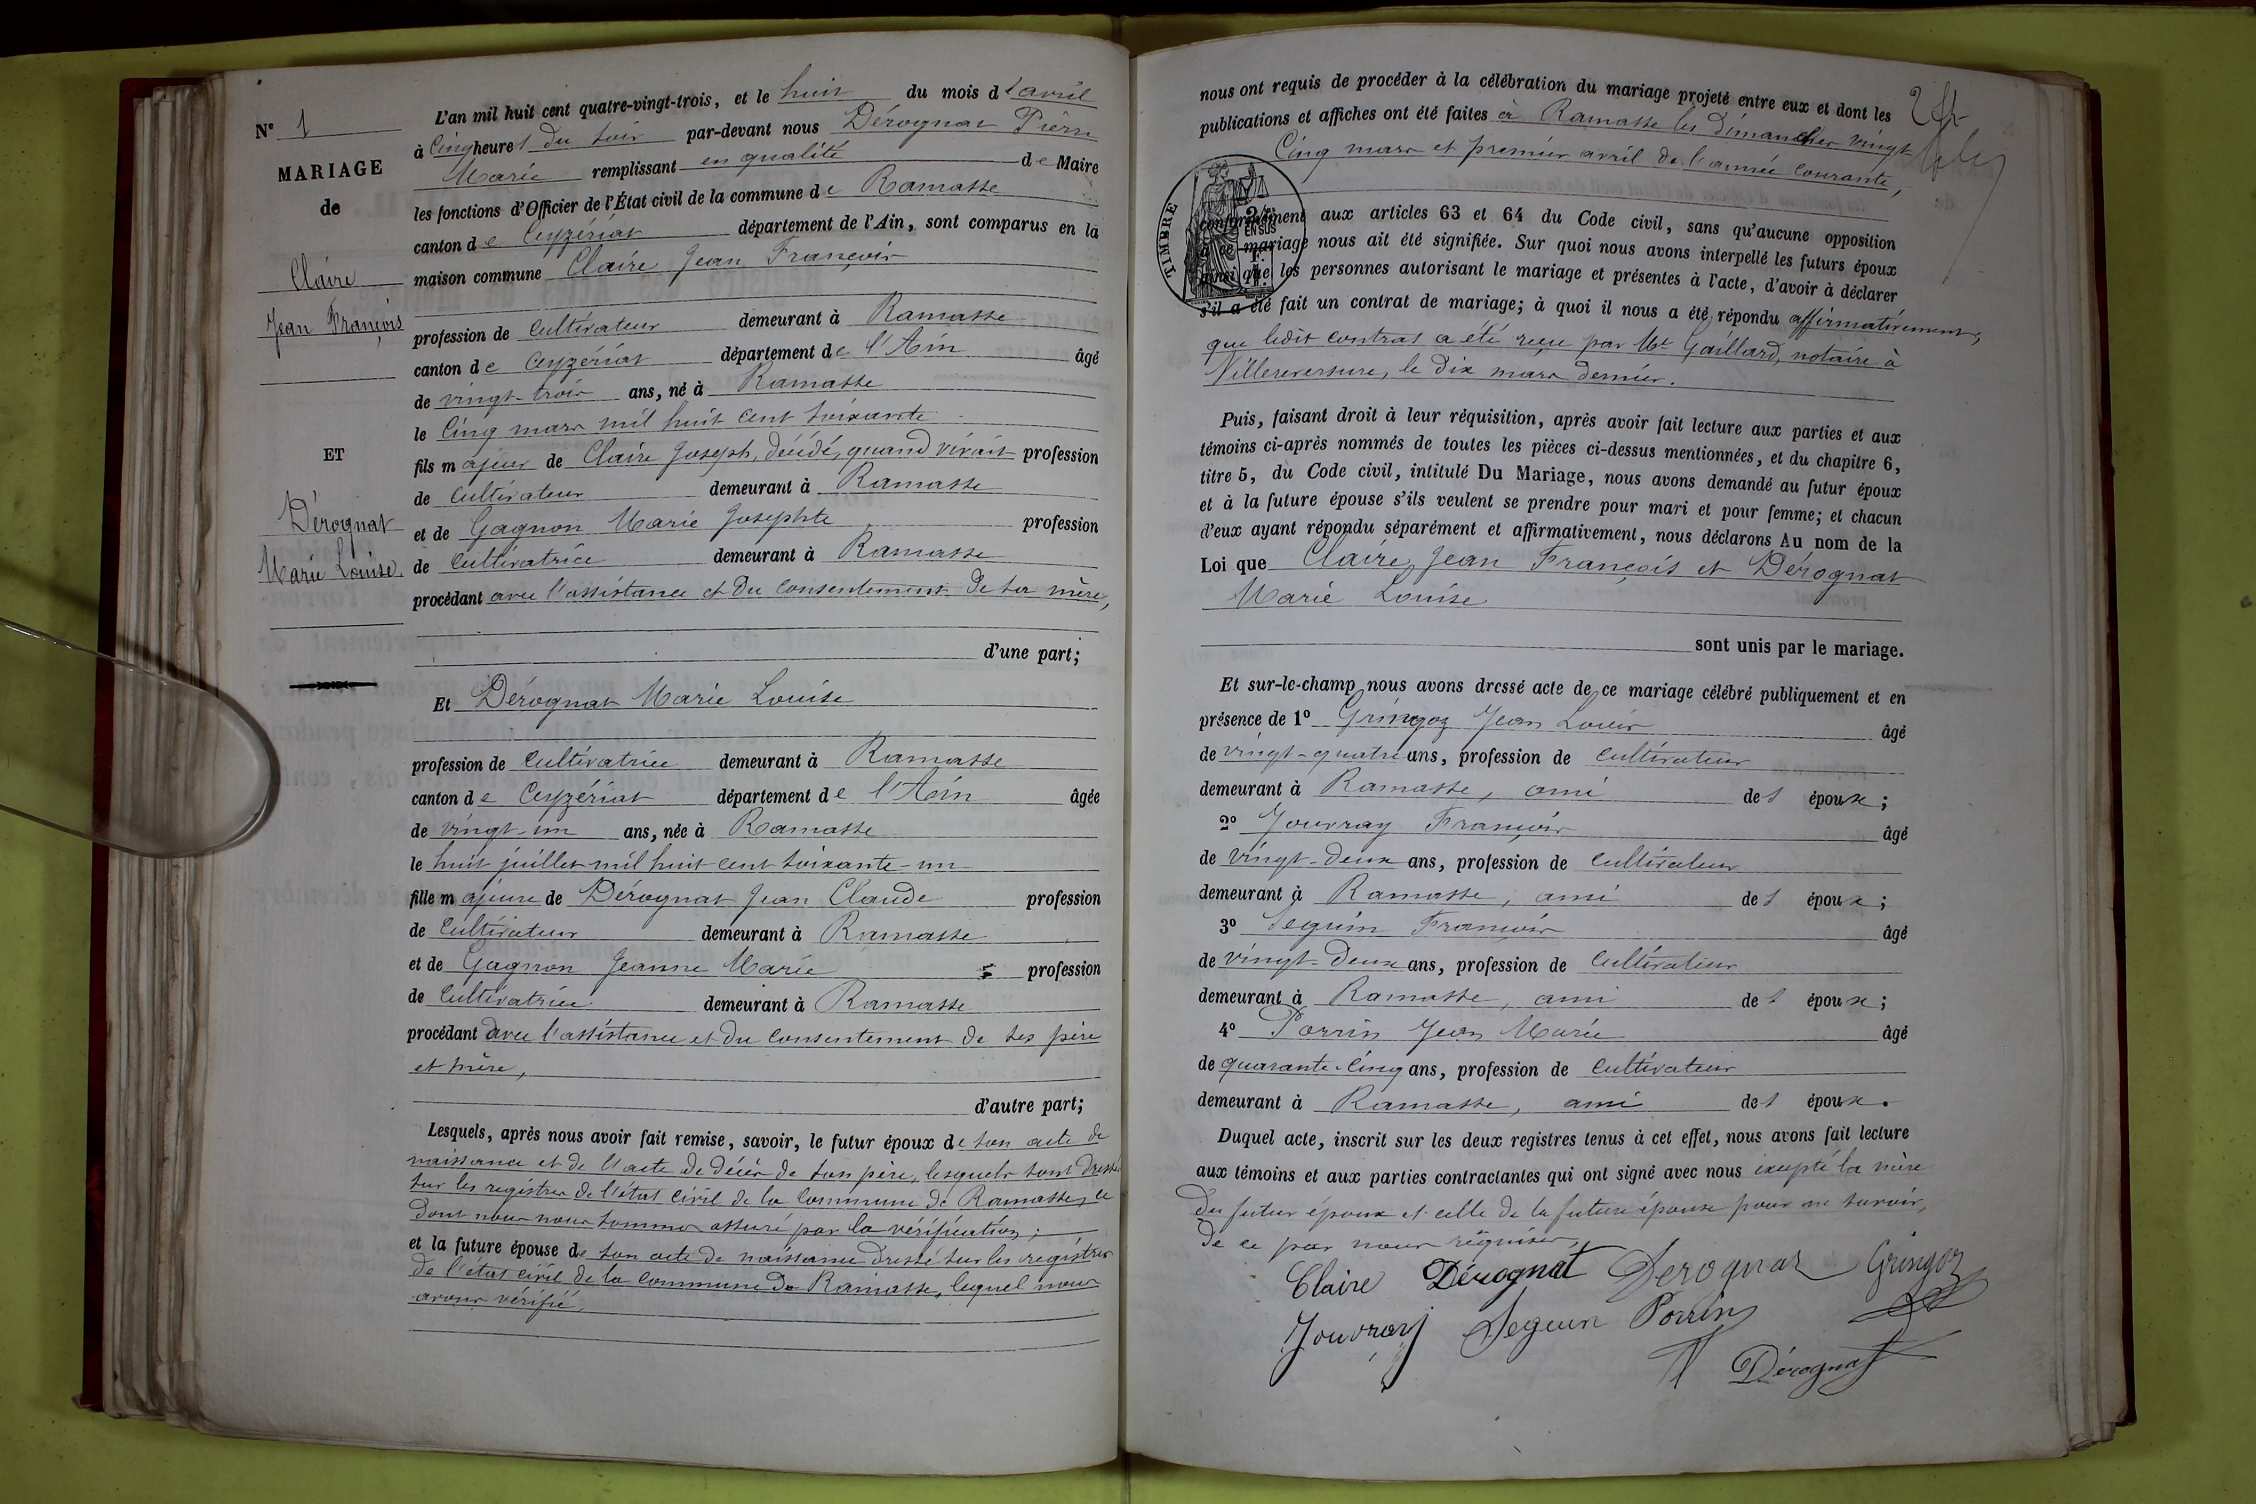 N° 1
MARIAGE
de
Claire
Jean François
ET
Dérognat
Marie Louise.
L'an mil huit cent quatre-vingt-trois, et le huit du mois d'avril
à Cinq heures du soir par-devant nous Dérognat Pierre
Marie remplissant en qualité de Maire
les fonctions d'Officier de l'État civil de la commune de Ramasse
canton de Ceyzériat département de l'Ain, sont comparus en la
maison commune Claire Jean François
profession de cultivateur demeurant à Ramasse
canton de Ceyzériat département de l'Ain âgé
de vingt-trois ans, né à Ramasse
le Cinq mars mil huit cent soixante
fils majeur de Claire Joseph, décédé, quand vivait profession
de cultivateur demeurant à Ramasse
et de Gagnon Marie Josephte profession
de cultivatrice demeurant à Ramasse
procédant avec l'assistance et du consentement de sa mère,
d'une part;
Et Dérognat Marie Louise
profession de cultivatrice demeurant à Ramasse
canton de Ceyzériat département de l'Ain âgée
de vingt-un ans, née à Ramasse
le huit juillet mil huit cent soixante-un
fille majeure de Dérognat Jean Claude profession
de cultivateur demeurant à Ramasse
et de Gagnon Jeanne Marie profession
de cultivatrice demeurant à Ramasse
procédant avec l'assistance et du consentement de ses père
et mère,
d'autre part;
Lesquels, après nous avoir fait remise, savoir, le futur époux de son acte de
naissance et de l'acte de décès de son père, lesquels sont dressés
sur les registres de l'état civil de la commune de Ramasse, ce
dont nous nous sommes assuré par la vérification;
et la future épouse de son acte de naissance dressé sur les registres
de l'état civil de la commune de Ramasse, lequel nous
avons vérifié.
nous ont requis de procéder à la célébration du mariage projeté entre eux et dont les
publications et affiches ont été faites à Ramasse les dimanches vingt
Cinq mars et premier avril de l'année courante,
TIMBRE
EN SUS
conformément aux articles 63 et 64 du Code civil, sans qu'aucune opposition
à ce mariage nous ait été signifiée. Sur quoi nous avons interpellé les futurs époux
ainsi que les personnes autorisant le mariage et présentes à l'acte, d'avoir à déclarer
s'il a été fait un contrat de mariage; à quoi il nous a été répondu affirmativement,
que ledit contrat a été reçu par Mt Gaillard, notaire à
Villereversure, le dix mars dernier.
Puis, faisant droit à leur réquisition, après avoir fait lecture aux parties et aux
témoins ci-après nommés de toutes les pièces ci-dessus mentionnées, et du chapitre 6,
titre 5, du Code civil, intitulé Du Mariage, nous avons demandé au futur époux
et à la future épouse s'ils veulent se prendre pour mari et pour femme; et chacun
d'eux ayant répondu séparément et affirmativement, nous déclarons Au nom de la
Loi que Claire, Jean François et Dérognat
Marie Louise
sont unis par le mariage.
Et sur-le-champ nous avons dressé acte de ce mariage célébré publiquement et en
présence de 1° Gringoz Jean Louis âgé
de vingt-quatre ans, profession de cultivateur
demeurant à Ramasse, ami des époux;
2° Jouvray François âgé
de vingt-deux ans, profession de cultivateur
demeurant à Ramasse, ami des époux;
3° Seguin François âgé
de vingt-deux ans, profession de cultivateur
demeurant à Ramasse, ami des époux;
4° Porrin Jean Marie âgé
de quarante-cinq ans, profession de cultivateur
demeurant à Ramasse, ami des époux.
Duquel acte, inscrit sur les deux registres tenus à cet effet, nous avons fait lecture
aux témoins et aux parties contractantes qui ont signé avec nous excepté la mère
du futur époux et celle de la future épouse pour ne savoir,
de ce par nous réquises,
Claire Dérognat Derognat Gringoz
Jouvray Seguin Porrin
Dérognat